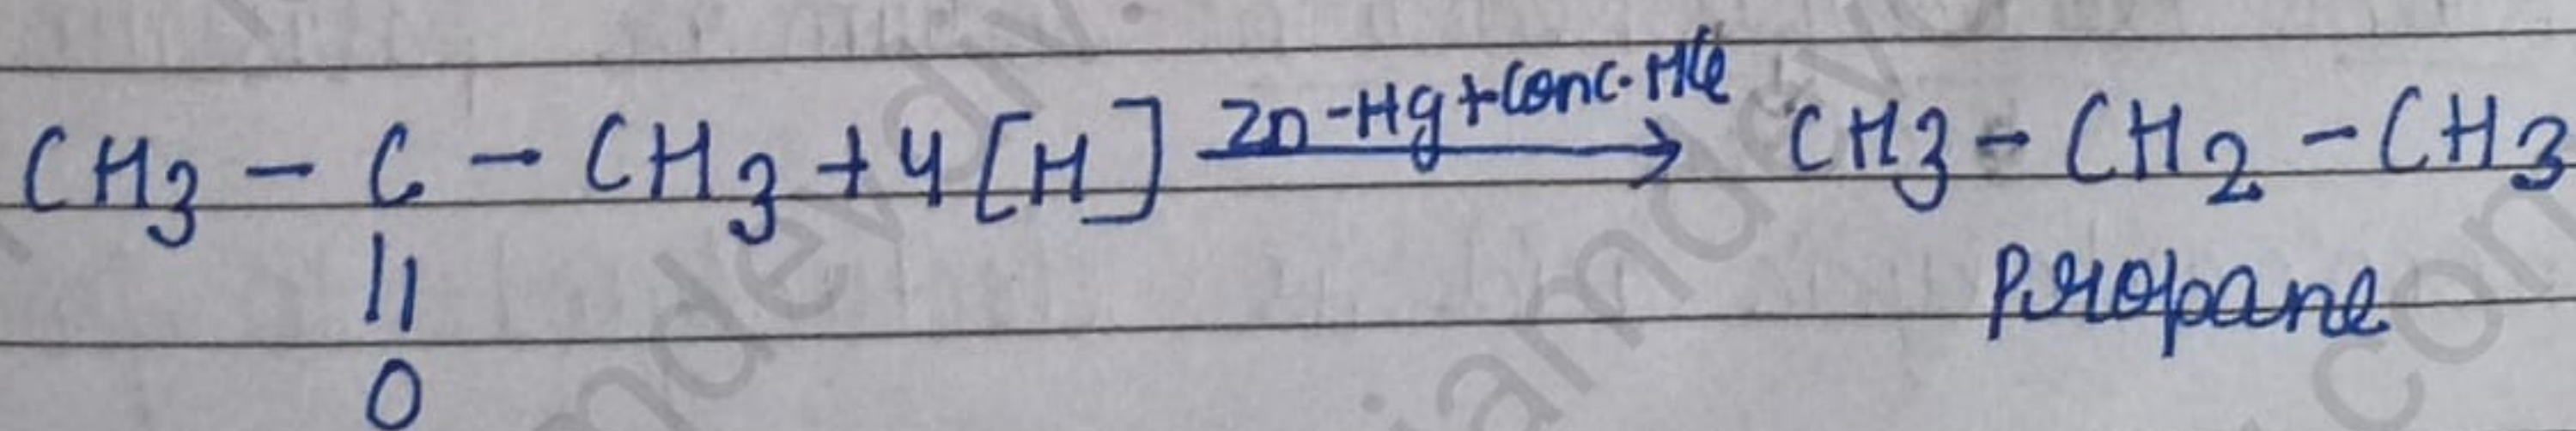 CH3 - C - CH3 + 4[H] Zn-Hg+Conc.HCl → CH3 - CH2 - CH3
||
O
Propane